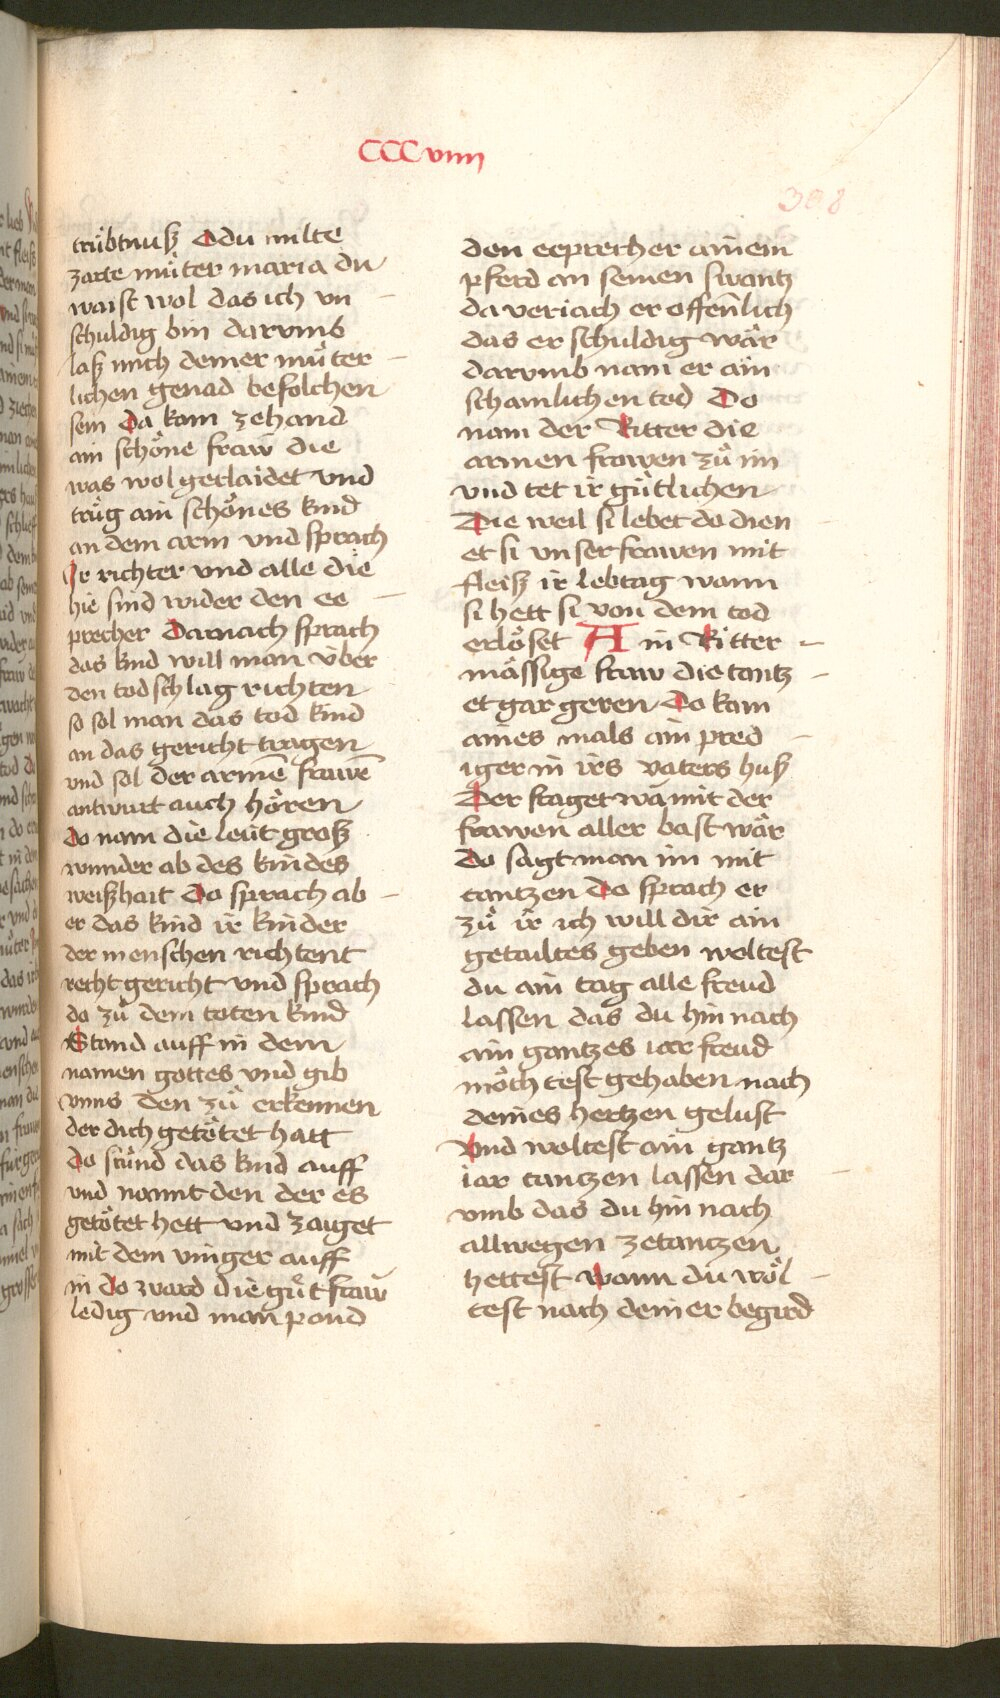 CCCviiii
308
trůbtnuß O du milte
zarte můter maria du
waist wol das ich vn
schuldig bin darvmb
laß mich deiner můter
lichen genad befolchen
sein Da kam zehand
ain schöne fraw die
was wol geclaidet vnd
trůg ain schönes kind
an dem arm vnd sprach
Ir richter vnd alle die
hie sind wider den ee
precher Darnach sprach
das kind will man über
den todschlag richten
so sol man das tod kind
an das gericht tragen
vnd sol der armē frawē
antwurt auch hören
do nam die leüt groß
wunder ab des kindes
weißhait Do sprach ab
er das kind ir kinder
der menschen richtent
recht gericht vnd sprach
do zů dem toten kind
Stand auff in dem
namen gottes vnd gib
vnns den zů erkennen
der dich getötet hatt
Do stůnd das kind auff
vnd nannt den der es
getötet hett vnd zaiget
mit dem vinger auff
in do ward die gůt fraw
ledig vnd man pand
den eeprecher ainem
pferd an seinen swantz
da veriach er offenlich
das er schuldig wär
darvmb nam er ain
schamlichen tod Do
nam der Ritter die
armen frawen zů im
vnd tet ir gůtlichen
Die weil si lebet do dien
et si vnser frawen mit
fleiß ir lebtag wann
si hett si von dem tod
erlöset Ain Ritter
mässige fraw die tantz
et gar geren Do kam
aines mals ain pred
iger in irs vaters huß
Der fraget wa mit der
frawen aller bast wär
Do sagt man im mit
tantzen Do sprach er
zů ir ich will dir ain
getailtes geben woltest
du ain tag alle freud
lassen das du hin nach
ain gantzes iar freud
möchtest gehaben nach
deines hertzen gelust
Vnd woltest ain gantz
iar tantzen lassen dar
vmb das du hin nach
allwegen zetantzen
hettest Wann du wöl
test nach deiner begird